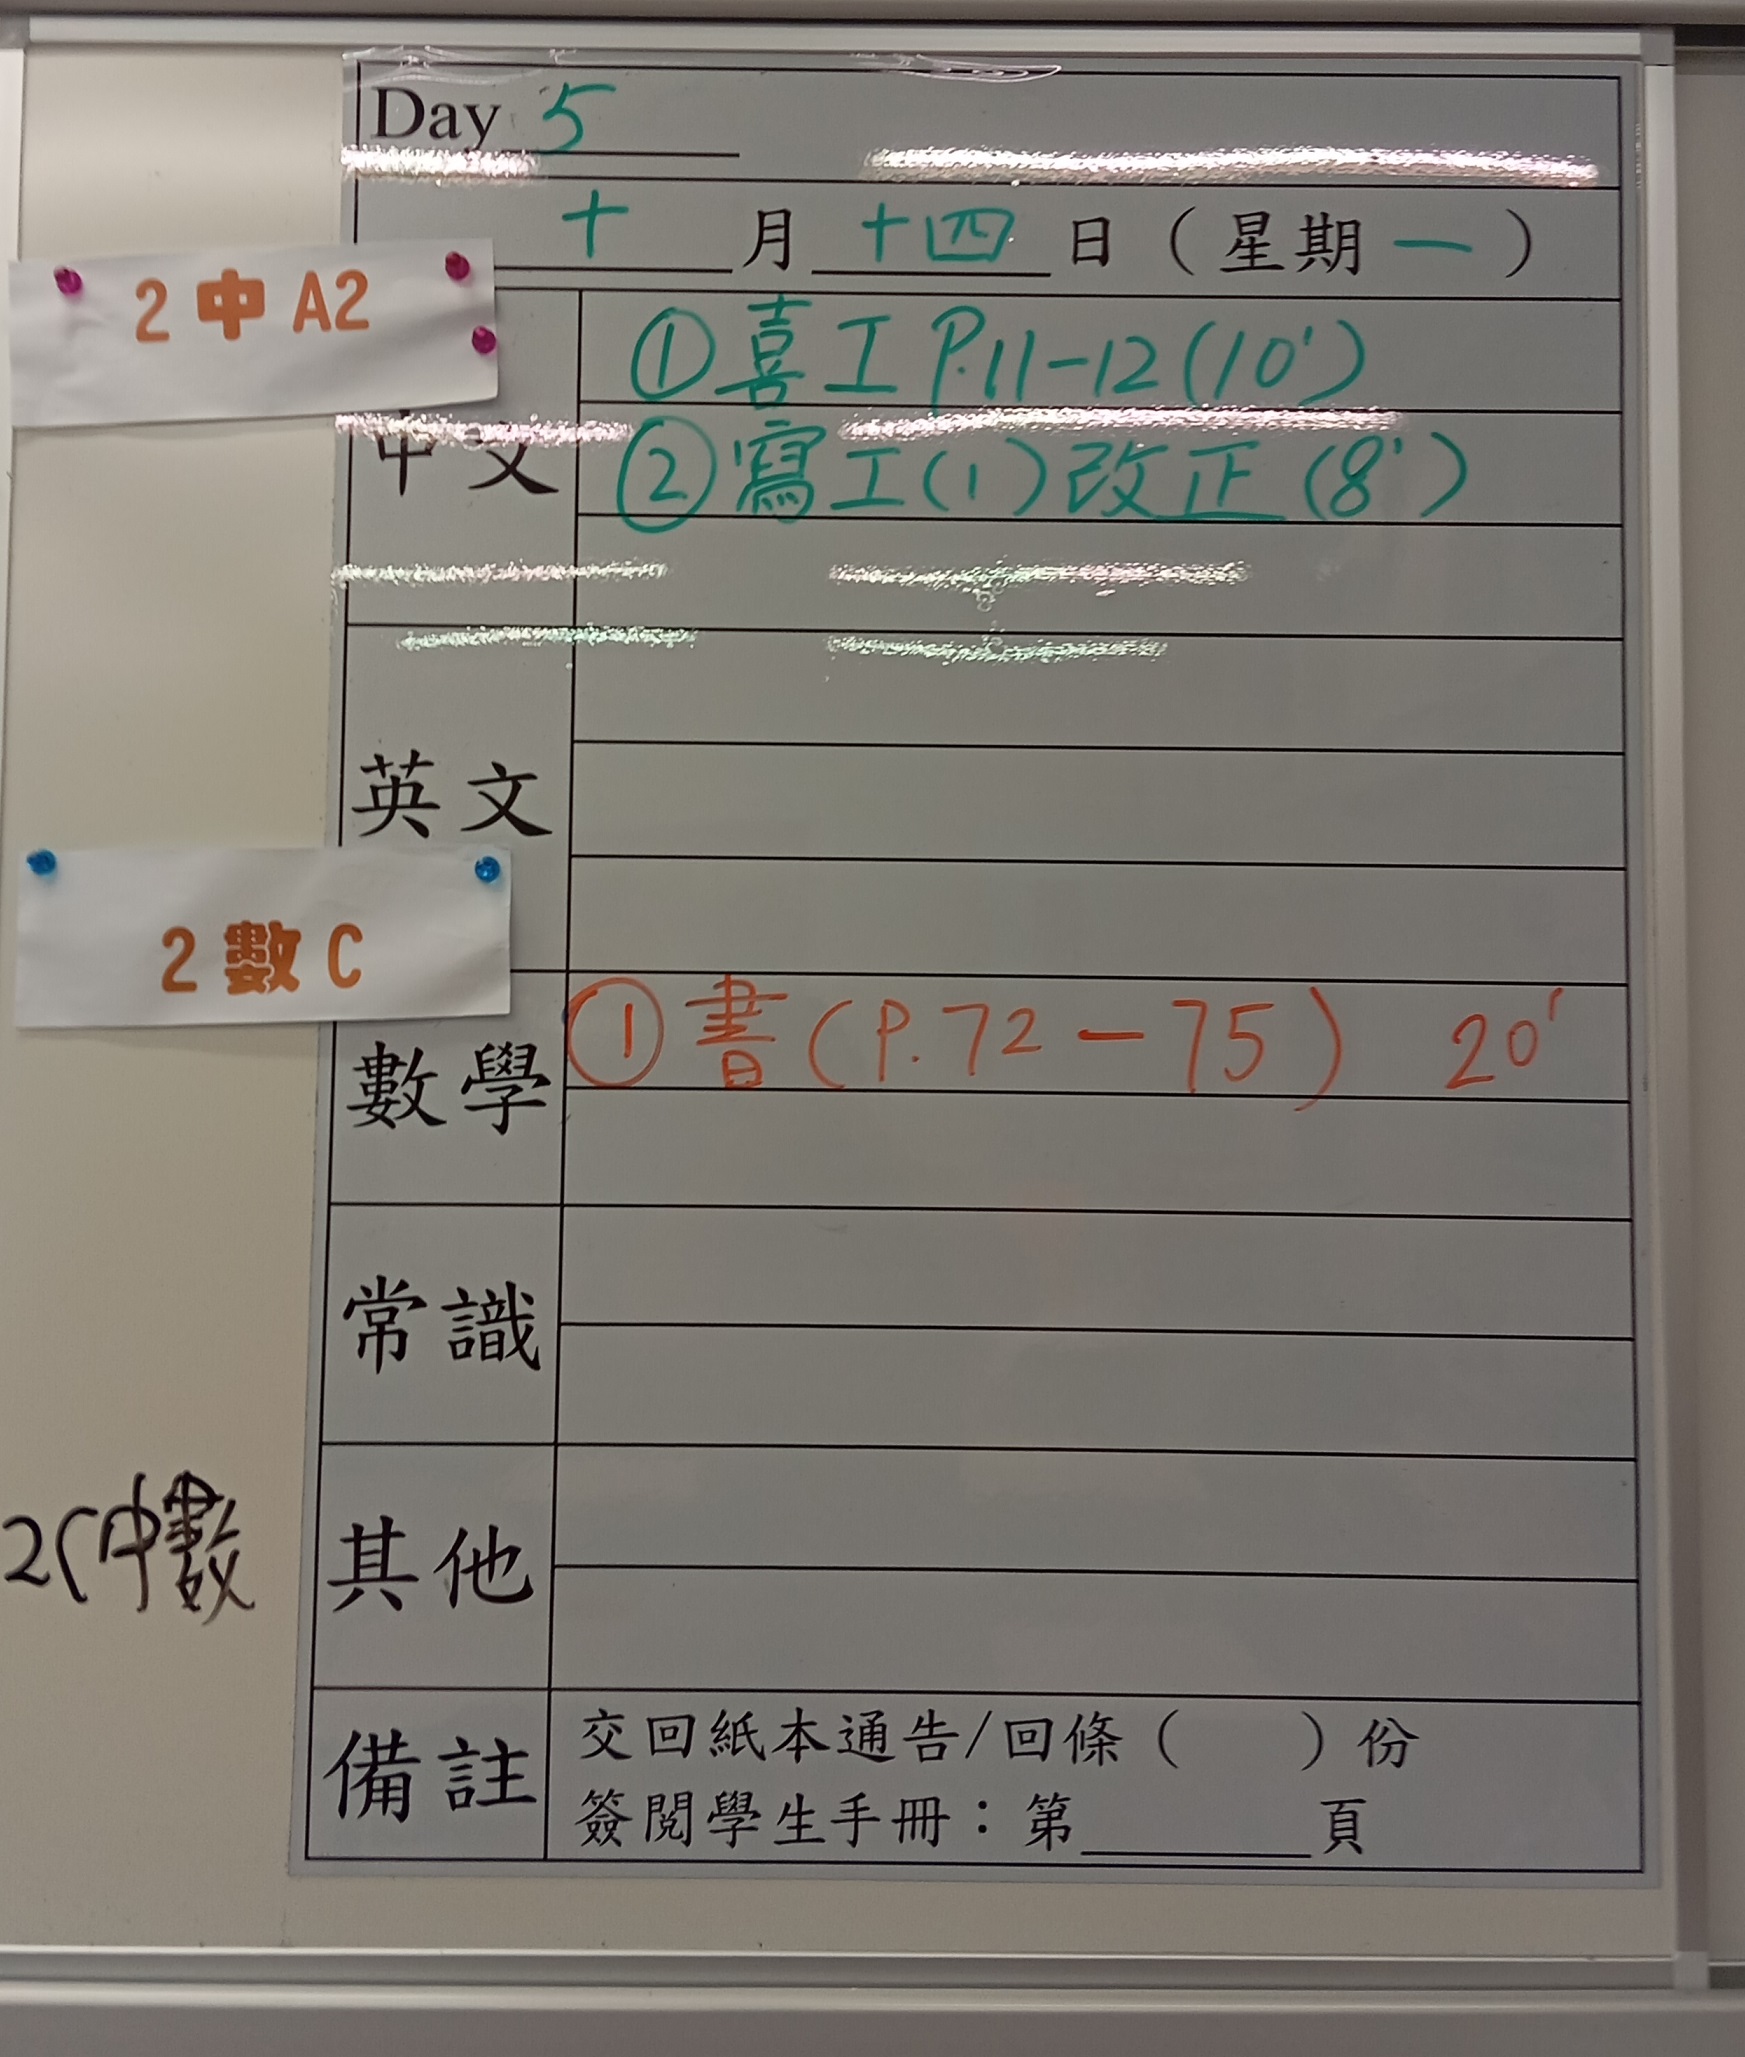 Day 5
十月十四日（星期一）
2中A2
中文
①喜工P.11-12(10')
②寫工(1)改正(8')
英文
2數C
數學
①書(P.72-75) 20'
常識
其他
2C中數
備註
交回紙本通告/回條（　　）份
簽閱學生手冊：第______頁